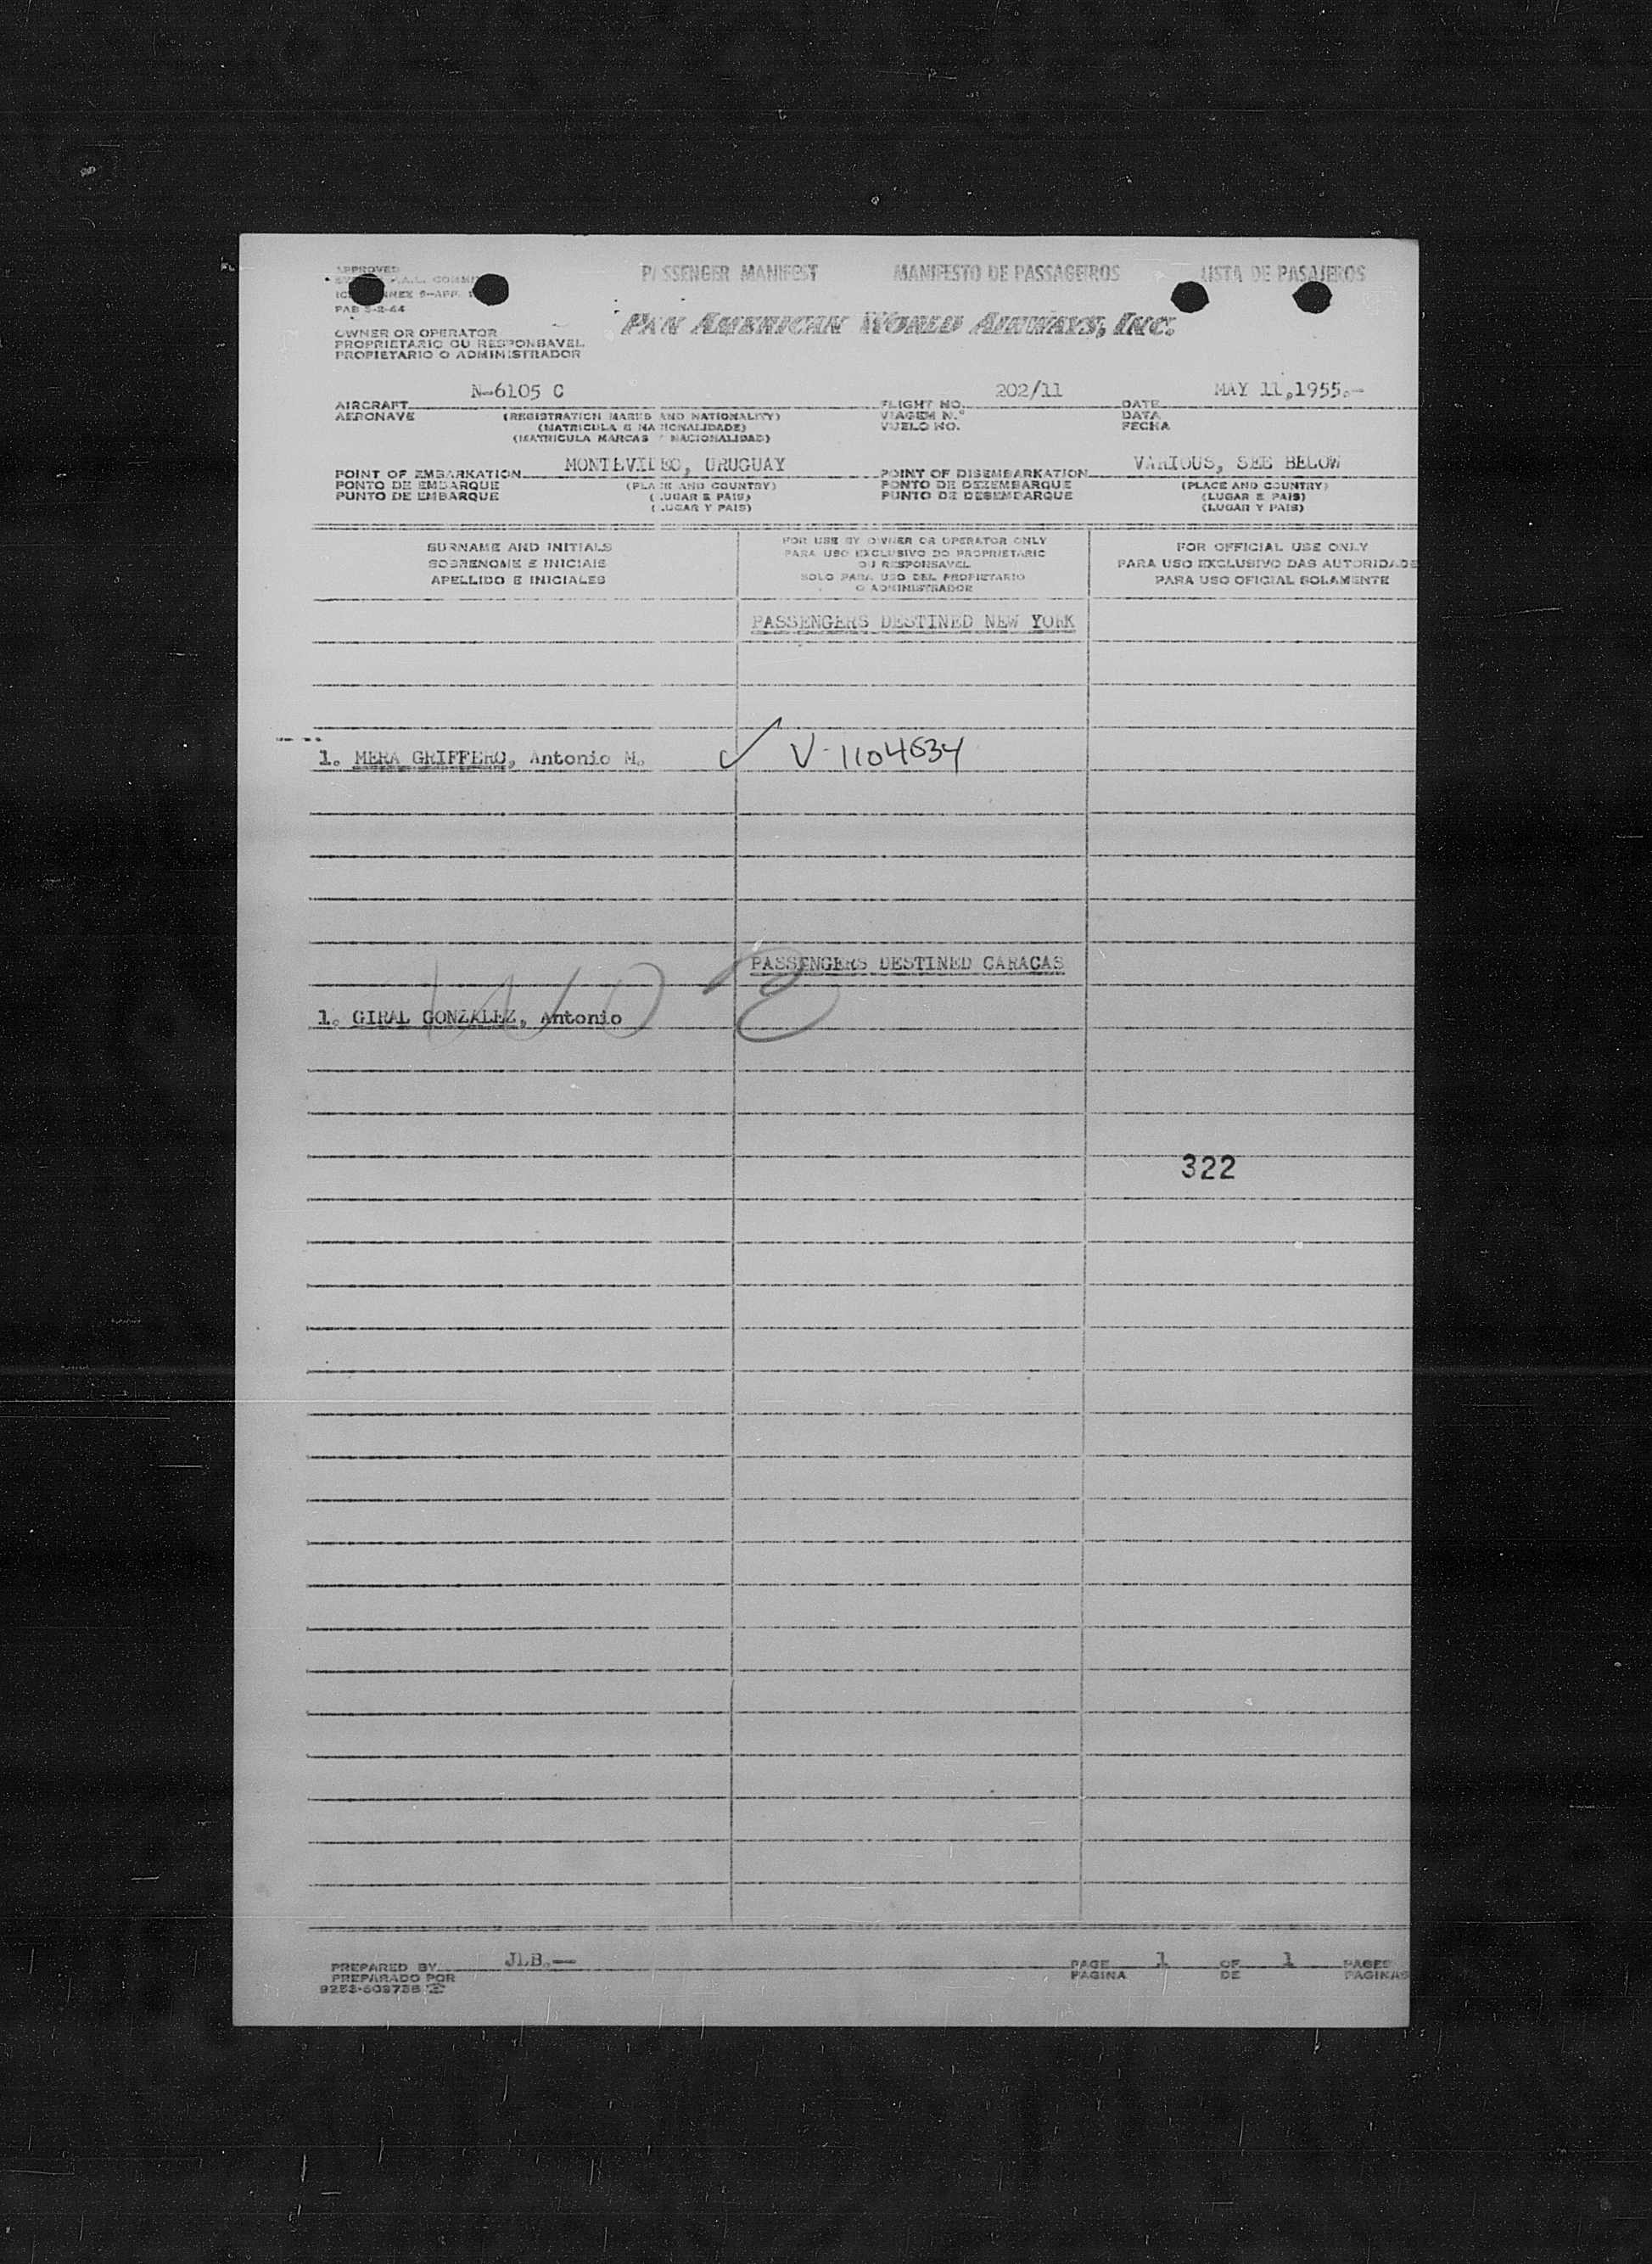 PASSENGER MANIFEST MANIFESTO DE PASSAGEIROS LISTA DE PASAJEROS
APPROVED
PAB 5-2-44
PAN AMERICAN WORLD AIRWAYS, INC.
OWNER OR OPERATOR
PROPRIETARIO OU RESPONSAVEL
PROPIETARIO O ADMINISTRADOR
N-6105 C 202/11 MAY 11,1955.-
AIRCRAFT FLIGHT NO. DATE
AERONAVE (REGISTRATION MARKS AND NATIONALITY) VIAGEM N.° DATA
(MATRICULA E NACIONALIDADE) VUELO NO. FECHA
(MATRICULA MARCAS Y NACIONALIDAD)
MONTEVIDEO, URUGUAY VARIOUS, SEE BELOW
POINT OF EMBARKATION POINT OF DISEMBARKATION
PONTO DE EMBARQUE (PLACE AND COUNTRY) PONTO DE DEZEMBARQUE (PLACE AND COUNTRY)
PUNTO DE EMBARQUE (LUGAR E PAIS) PUNTO DE DESEMBARQUE (LUGAR E PAIS)
(LUGAR Y PAIS) (LUGAR Y PAIS)
SURNAME AND INITIALS FOR USE BY OWNER OR OPERATOR ONLY FOR OFFICIAL USE ONLY
SOBRENOME E INICIAIS PARA USO EXCLUSIVO DO PROPRIETARIO OU RESPONSAVEL PARA USO EXCLUSIVO DAS AUTORIDADE
APELLIDO E INICIALES SOLO PARA USO DEL PROPIETARIO O ADMINISTRADOR PARA USO OFICIAL SOLAMENTE
PASSENGERS DESTINED NEW YORK
1. MERA GRIFFERO, Antonio M. ✓ V-1104634
PASSENGERS DESTINED CARACAS
1. GIRAL GONZALEZ, Antonio
322
PREPARED BY JLB.— PAGE 1 OF 1 PAGES
PREPARADO POR PAGINA DE PAGINAS